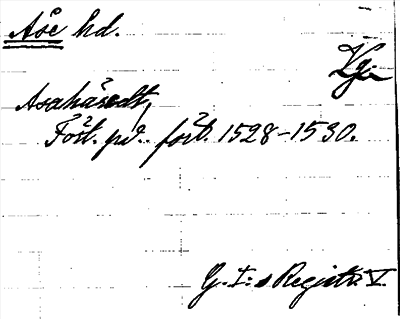 Åse hd.
Vgl
Asahäredt,
Fört. på.. fört. 1528-1530.
G. I:s Registr. V.